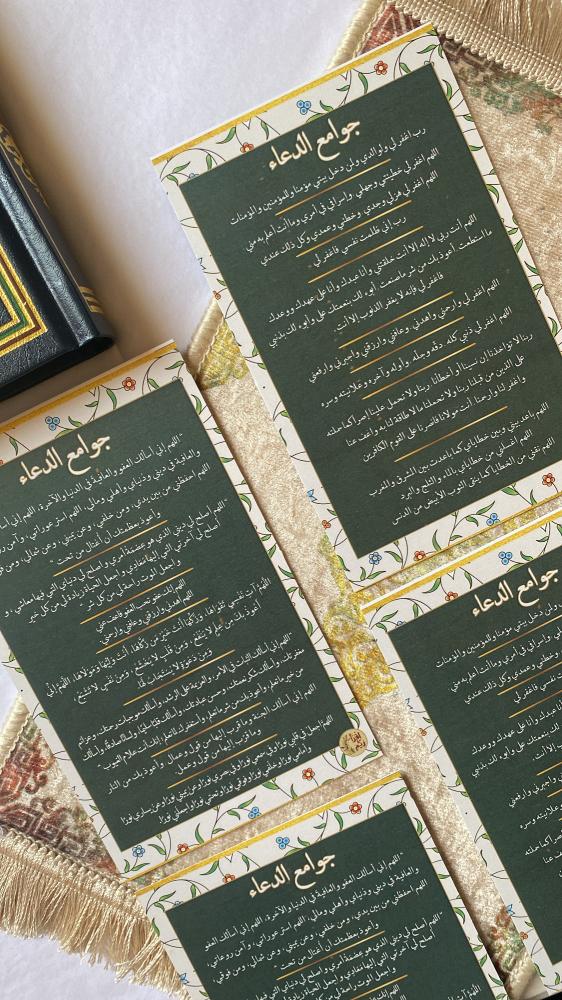 جوامع الدعاء
رب اغفر لي ولوالدي ولمن دخل بيتي مؤمنا وللمؤمنين والمؤمنات
اللهم اغفر لي خطيئتي وجهلي وإسرافي في أمري وما أنت أعلم به مني
اللهم اغفر لي هزلي وجدي وخطئي وعمدي وكل ذلك عندي
رب إني ظلمت نفسي فاغفر لي
اللهم أنت ربي لا إله إلا أنت خلقتني وأنا عبدك وأنا على عهدك ووعدك
ما استطعت أعوذ بك من شر ما صنعت أبوء لك بنعمتك علي وأبوء لك بذنبي
فاغفر لي فإنه لا يغفر الذنوب إلا أنت
اللهم اغفر لي وارحمني واهدني وعافني وارزقني واجبرني وارفعني
اللهم اغفر لي ذنبي كله دقه وجله وأوله وآخره وعلانيته وسره
ربنا لا تؤاخذنا إن نسينا أو أخطأنا ربنا ولا تحمل علينا إصرا كما حملته
على الذين من قبلنا ربنا ولا تحملنا ما لا طاقة لنا به واعف عنا
واغفر لنا وارحمنا أنت مولانا فانصرنا على القوم الكافرين
اللهم باعد بيني وبين خطاياي كما باعدت بين المشرق والمغرب
اللهم اغسلني من خطاياي بالماء والثلج والبرد
اللهم نقني من الخطايا كما ينقى الثوب الأبيض من الدنس
جوامع الدعاء
"اللهم إني أسألك العفو والعافية في الدنيا والآخرة، اللهم إني أسألك
والعافية في ديني ودنياي وأهلي ومالي، اللهم استر عوراتي، وآمن
اللهم احفظني من بين يدي، ومن خلفي، وعن يميني، وعن شمالي، ومن
وأعوذ بعظمتك أن أغتال من تحتي"
"اللهم أصلح لي ديني الذي هو عصمة أمري وأصلح لي دنياي التي فيها معاشي، و
أصلح لي آخرتي التي إليها معادي واجعل الحياة زيادة لي من كل خير
واجعل الموت راحة لي من كل شر"
اللهم إنك عفو تحب العفو فاعف عني
اللهم آت نفسي تقواها، وزكها أنت خير من زكاها، أنت وليها ومولاها، اللهم إني
أعوذ بك من علم لا ينفع، ومن قلب لا يخشع، ومن نفس لا تشبع
ومن دعوة لا يستجاب لها
"اللهم إني أسألك الثبات في الأمر، والعزيمة على الرشد، وأسألك موجبات رحمتك، وعزائم
مغفرتك، وأسألك شكر نعمتك، وحسن عبادتك، وأسألك قلبا سليما، ولسانا صادقا، وأسألك
من خير ما تعلم، وأعوذ بك من شر ما تعلم، وأستغفرك لما تعلم إنك أنت علام الغيوب"
اللهم إني أسألك الجنة وما قرب إليها من قول وعمل، وأعوذ بك من النار
وما قرب إليها من قول وعمل
جوامع الدعاء
ولمن دخل بيتي مؤمنا وللمؤمنين والمؤمنات
وإسرافي في أمري وما أنت أعلم به مني
وخطئي وعمدي وكل ذلك عندي
نفسي فاغفر لي
وأنا عبدك وأنا على عهدك ووعدك
أبوء لك بنعمتك علي وأبوء لك بذنبي
إلا أنت
واجبرني وارفعني
وعلانيته وسره
إصرا كما حملته
جوامع الدعاء
"اللهم إني أسألك العفو والعافية في الدنيا والآخرة، اللهم إني أسألك العفو
والعافية في ديني ودنياي وأهلي ومالي، اللهم استر عوراتي، وآمن روعاتي
اللهم احفظني من بين يدي، ومن خلفي، وعن يميني، وعن شمالي، ومن فوقي،
وأعوذ بعظمتك أن أغتال من تحتي"
"اللهم أصلح لي ديني الذي هو عصمة أمري وأصلح لي دنياي التي فيها
أصلح لي آخرتي التي إليها معادي واجعل الحياة زيادة
واجعل الموت راحة لي من